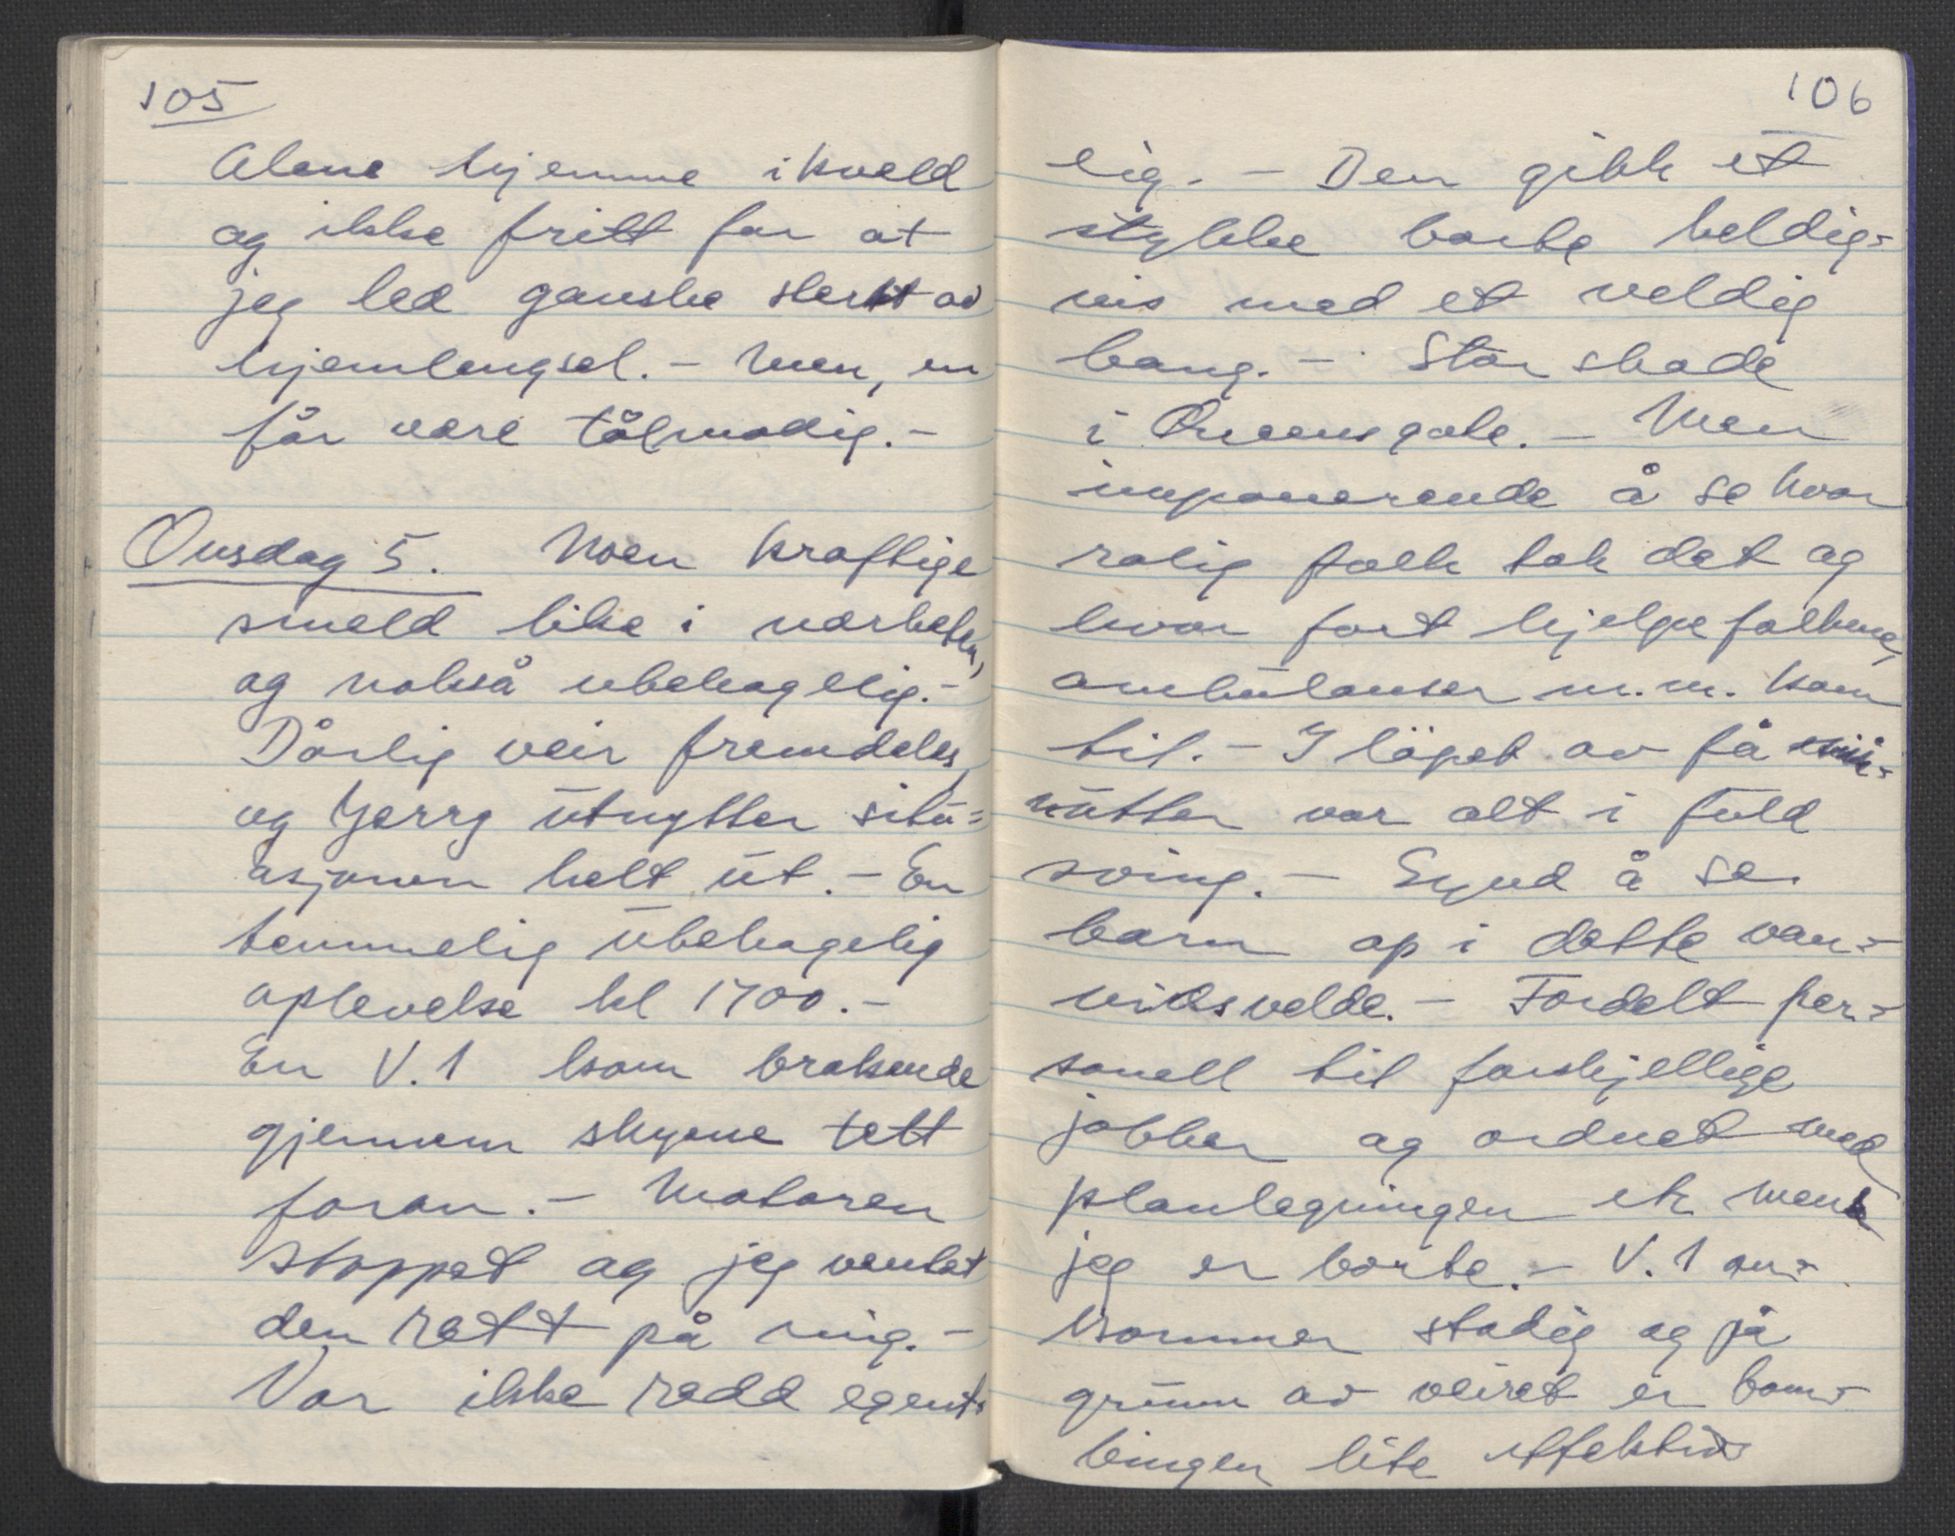 105
Alene hjemme ikveld
og ikke fritt for at
jeg led ganske sterkt av
hjemlengsel. - Men, en
får være tålmodig. -
Onsdag 5. Noen kraftige
smeld like i nærheten,
og nokså ubehagelig. -
Dårlig veir fremdeles,
og Jerry utnytter situ=
asjonen helt ut. - En
temmelig ubehagelig
oplevelse kl 1700. -
En V.1 kom brakende
gjennem skyene tett
foran. - Motoren
stoppet og jeg ventet
den rett på mig. -
Var ikke redd egent=
106
lig. - Den gikk et
stykke borte heldig=
vis med et veldig
bang. - Stor skade
i Queensgate. - Men
imponerende å se hvor
rolig folk tok det og
hvor fort hjelpefolkene,
ambulanser m.m. kom
til. - I löpet av få mi=
nutter var alt i full
sving. - Synd å se
barn op i dette van=
vidsvelde. - Fordelt per=
sonell til forskjellige
jobber og ordnet med
planlegningen etc mens
jeg er borte. - V.1 an=
kommer stadig og på
grunn av veiret er bom=
bingen lite effektiv